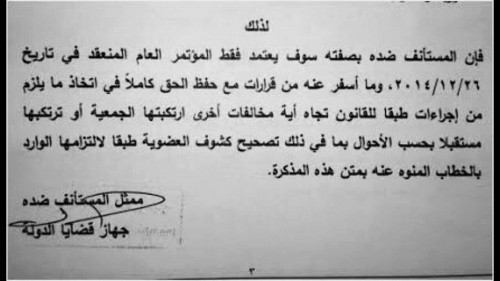 لذلك
فإن المستأنف ضده بصفته سوف يعتمد فقط المؤتمر العام المنعقد في تاريخ
٢٠١٤/١٢/٢٦، وما أسفر عنه من قرارات مع حفظ الحق كاملاً في اتخاذ ما يلزم
من إجراءات طبقا للقانون تجاه أية مخالفات أخرى ارتكبتها الجمعية أو ترتكبها
مستقبلا بحسب الأحوال بما في ذلك تصحيح كشوف العضوية طبقا لالتزامها الوارد
بالخطاب المنوه عنه بمتن هذه المذكرة.
ممثل المستأنف ضده
جهاز قضايا الدولة
٣